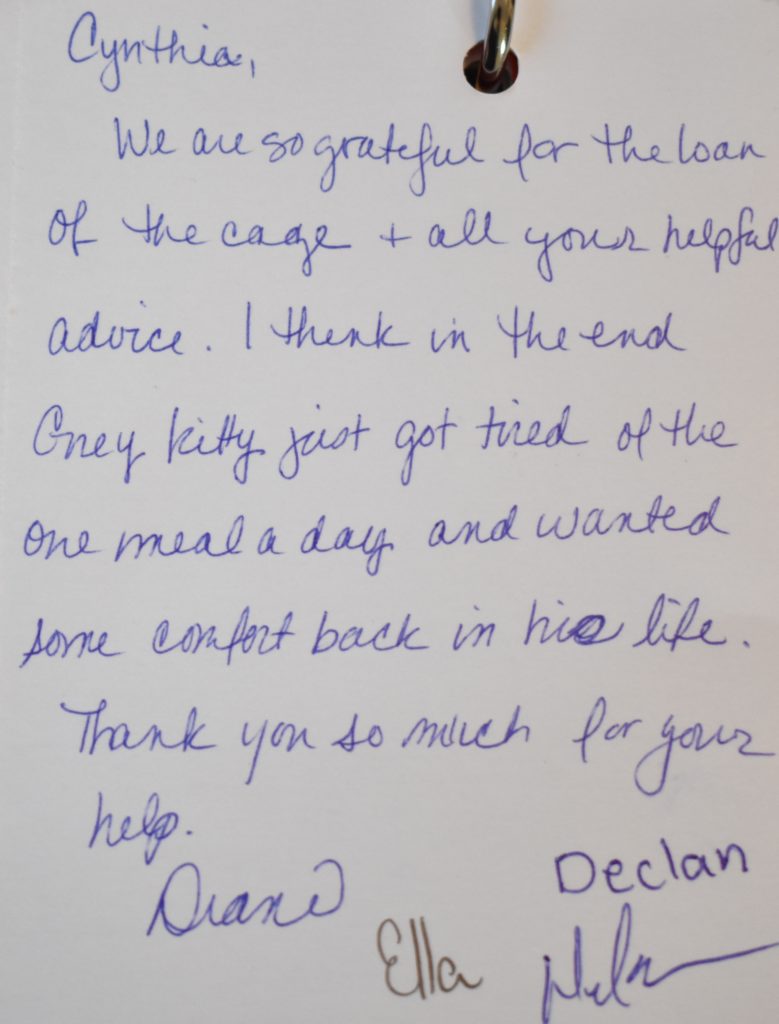 Cynthia,
We are so grateful for the loan
of the cage + all your helpful
advice. I think in the end
Grey kitty just got tired of the
one meal a day and wanted
some comfort back in his life.
Thank you so much for your
help.
Diane
Declan
Ella